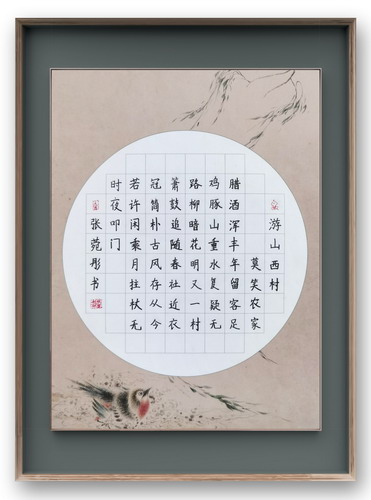 游山西村
莫笑农家
腊酒浑丰年留客足
鸡豚山重水复疑无
路柳暗花明又一村
箫鼓追随春社近衣
冠简朴古风存从今
若许闲乘月拄杖无
时夜叩门
张菀彤书